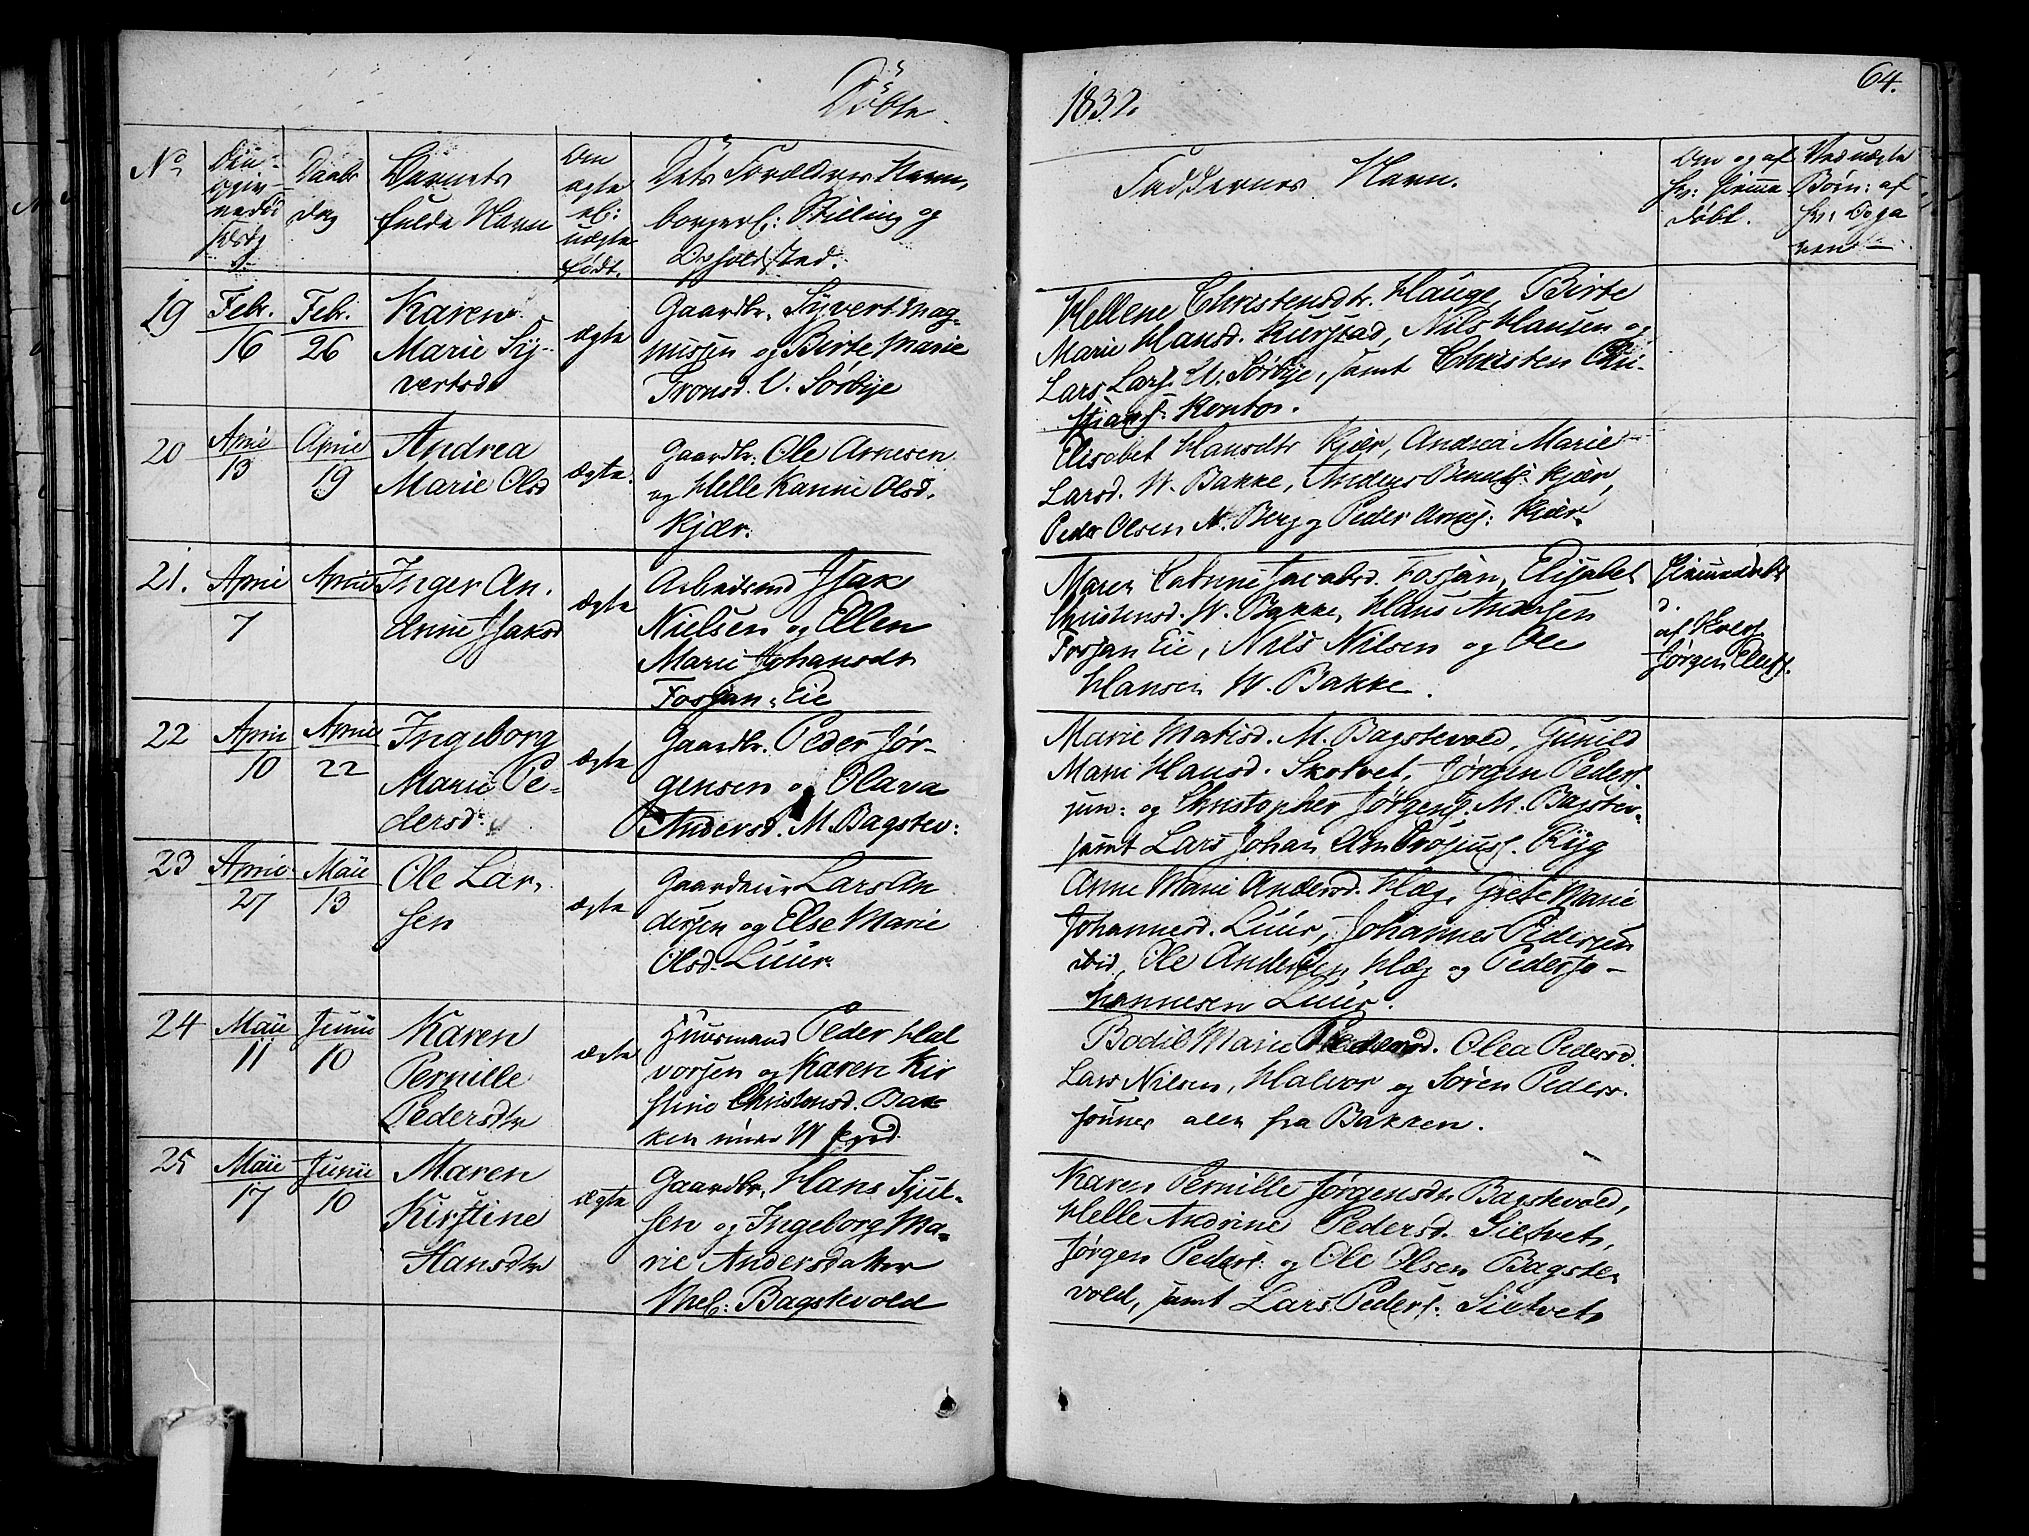 Döbte
1832.
64.
No
Daabs
Dag
Barnets
fulde Navn
Om
ægte
el:
uægte
födt.
Dets Forældres Navn,
borgerl: Stilling og
Opholdsted.
Faddernes Navn.
Om og af
hv: hjemme
döbt.
Ved uægte
Börn: af
19
Febr.
16
Febr.
26
Karen
Marie Sy-
vertsd
ægte
Gaardbr. Syvert Mag-
nussen og Birte Marie
Tronsd. V. Sørbye
Hellene Christensdtr. Hauge, Birte
Marie Hansd. Kurstad, Nils Hansen og
Lars Lars. W. Sørbye, samt Christen Chri-
stians: Kontos.
20
April
13
April
19
Andrea
Marie Olsd
ægte.
Gaardbr. Ole Arnesen
og Helle Karine Olsd.
Kjær.
Elisabet Hansdtr Kjær, Andrea Marie
Larsd. W. Bakke, Anders Bents: Kjær,
Peder Olsen N. Berg og Peder Arnes: Kjær.
21.
April
7
April
Inger An.
drine Isaksd
ægte
Arbeidsmd Isak
Nielsen og Ellen
Marie Johansdtr
Fossan Eie
Maren Catrine Jacobsd. Fossan, Elisabet
Christensd. W. Bakke, Hans Andersen
Fossan Eie, Nils Nilsen og Ole
Hansen W. Bakke.
Hjemmedöbt
af
Jørgen
22
April
10
April
22
Ingeborg
Marie Pe-
dersd:
ægte
Gaardbr. Peder Jør-
gensen og Olava
Andersd. M. Bagstev:
Marie Matisd. M. Bagstevold, Gunild
Marie Hansd. Skotvet, Jørgen Peders
jun: og Christopher Jørgens: M. Bagstev.
samt Lars Johan Ambrosius. Ryg
23
April
27
Maii
13
Ole Lar-
sen
ægte
Gaardeier Lars An
dersen og Else Marie
Olsd. Luur.
Anne Marie Andersd. Hæg, Grete Marie
Johannesd. Luur, Johannes Pedersen
ibid, Ole Andersen Hæg og Peder Jo-
hannesen Luur.
24
Maii
11
Junii
10
Karen
Pernille
Pedersdtr
ægte
Huusmand Peder Hal
vorsen og Karen Kir
stine Christensd. Bak
ken under W
Bodil Marie Pedersd. Olea Pedersd
Lars Nilsen, Halvor og Søren Peders.
sønner alle fra Bakken.
25
Maii
17
Junii
10
Maren
Kirstine
Hansdtr
ægte
Gaardbr. Hans Sjul-
sen og Ingeborg Ma-
rie Andersdatter
Mel: Bagstevold
Karen Pernille Jørgensdtr Bagstevold,
Helle Andrine Pedersd. Sietvet,
Jørgen Peders: og Ole Olsen Bagste-
vold, samt Lars Peders: Sietvet,